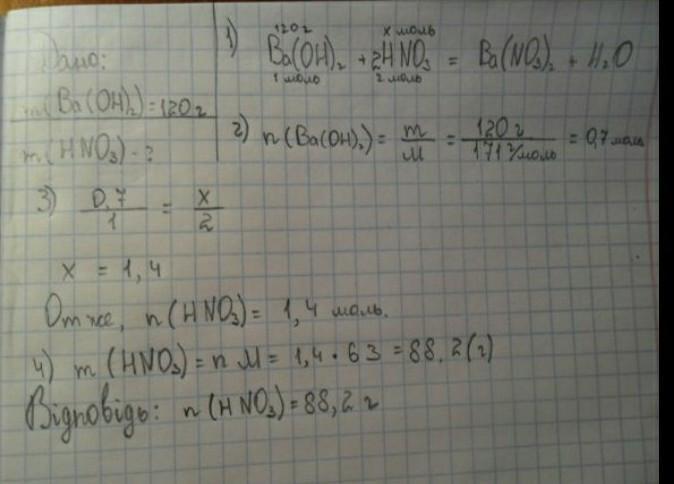 Дано:
m(Ba(OH)₂) = 120 г
m(HNO₃) - ?
1) 120 г x моль
Ba(OH)₂ + 2HNO₃ = Ba(NO₃)₂ + H₂O
1 моль 2 моль
2) n(Ba(OH)₂) = m/M = 120 г / 171 г/моль = 0,7 моль
3) 0,7/1 = x/2
x = 1,4
Отже, n(HNO₃) = 1,4 моль.
4) m(HNO₃) = n M = 1,4 · 63 = 88,2(г)
Відповідь: n(HNO₃) = 88,2 г